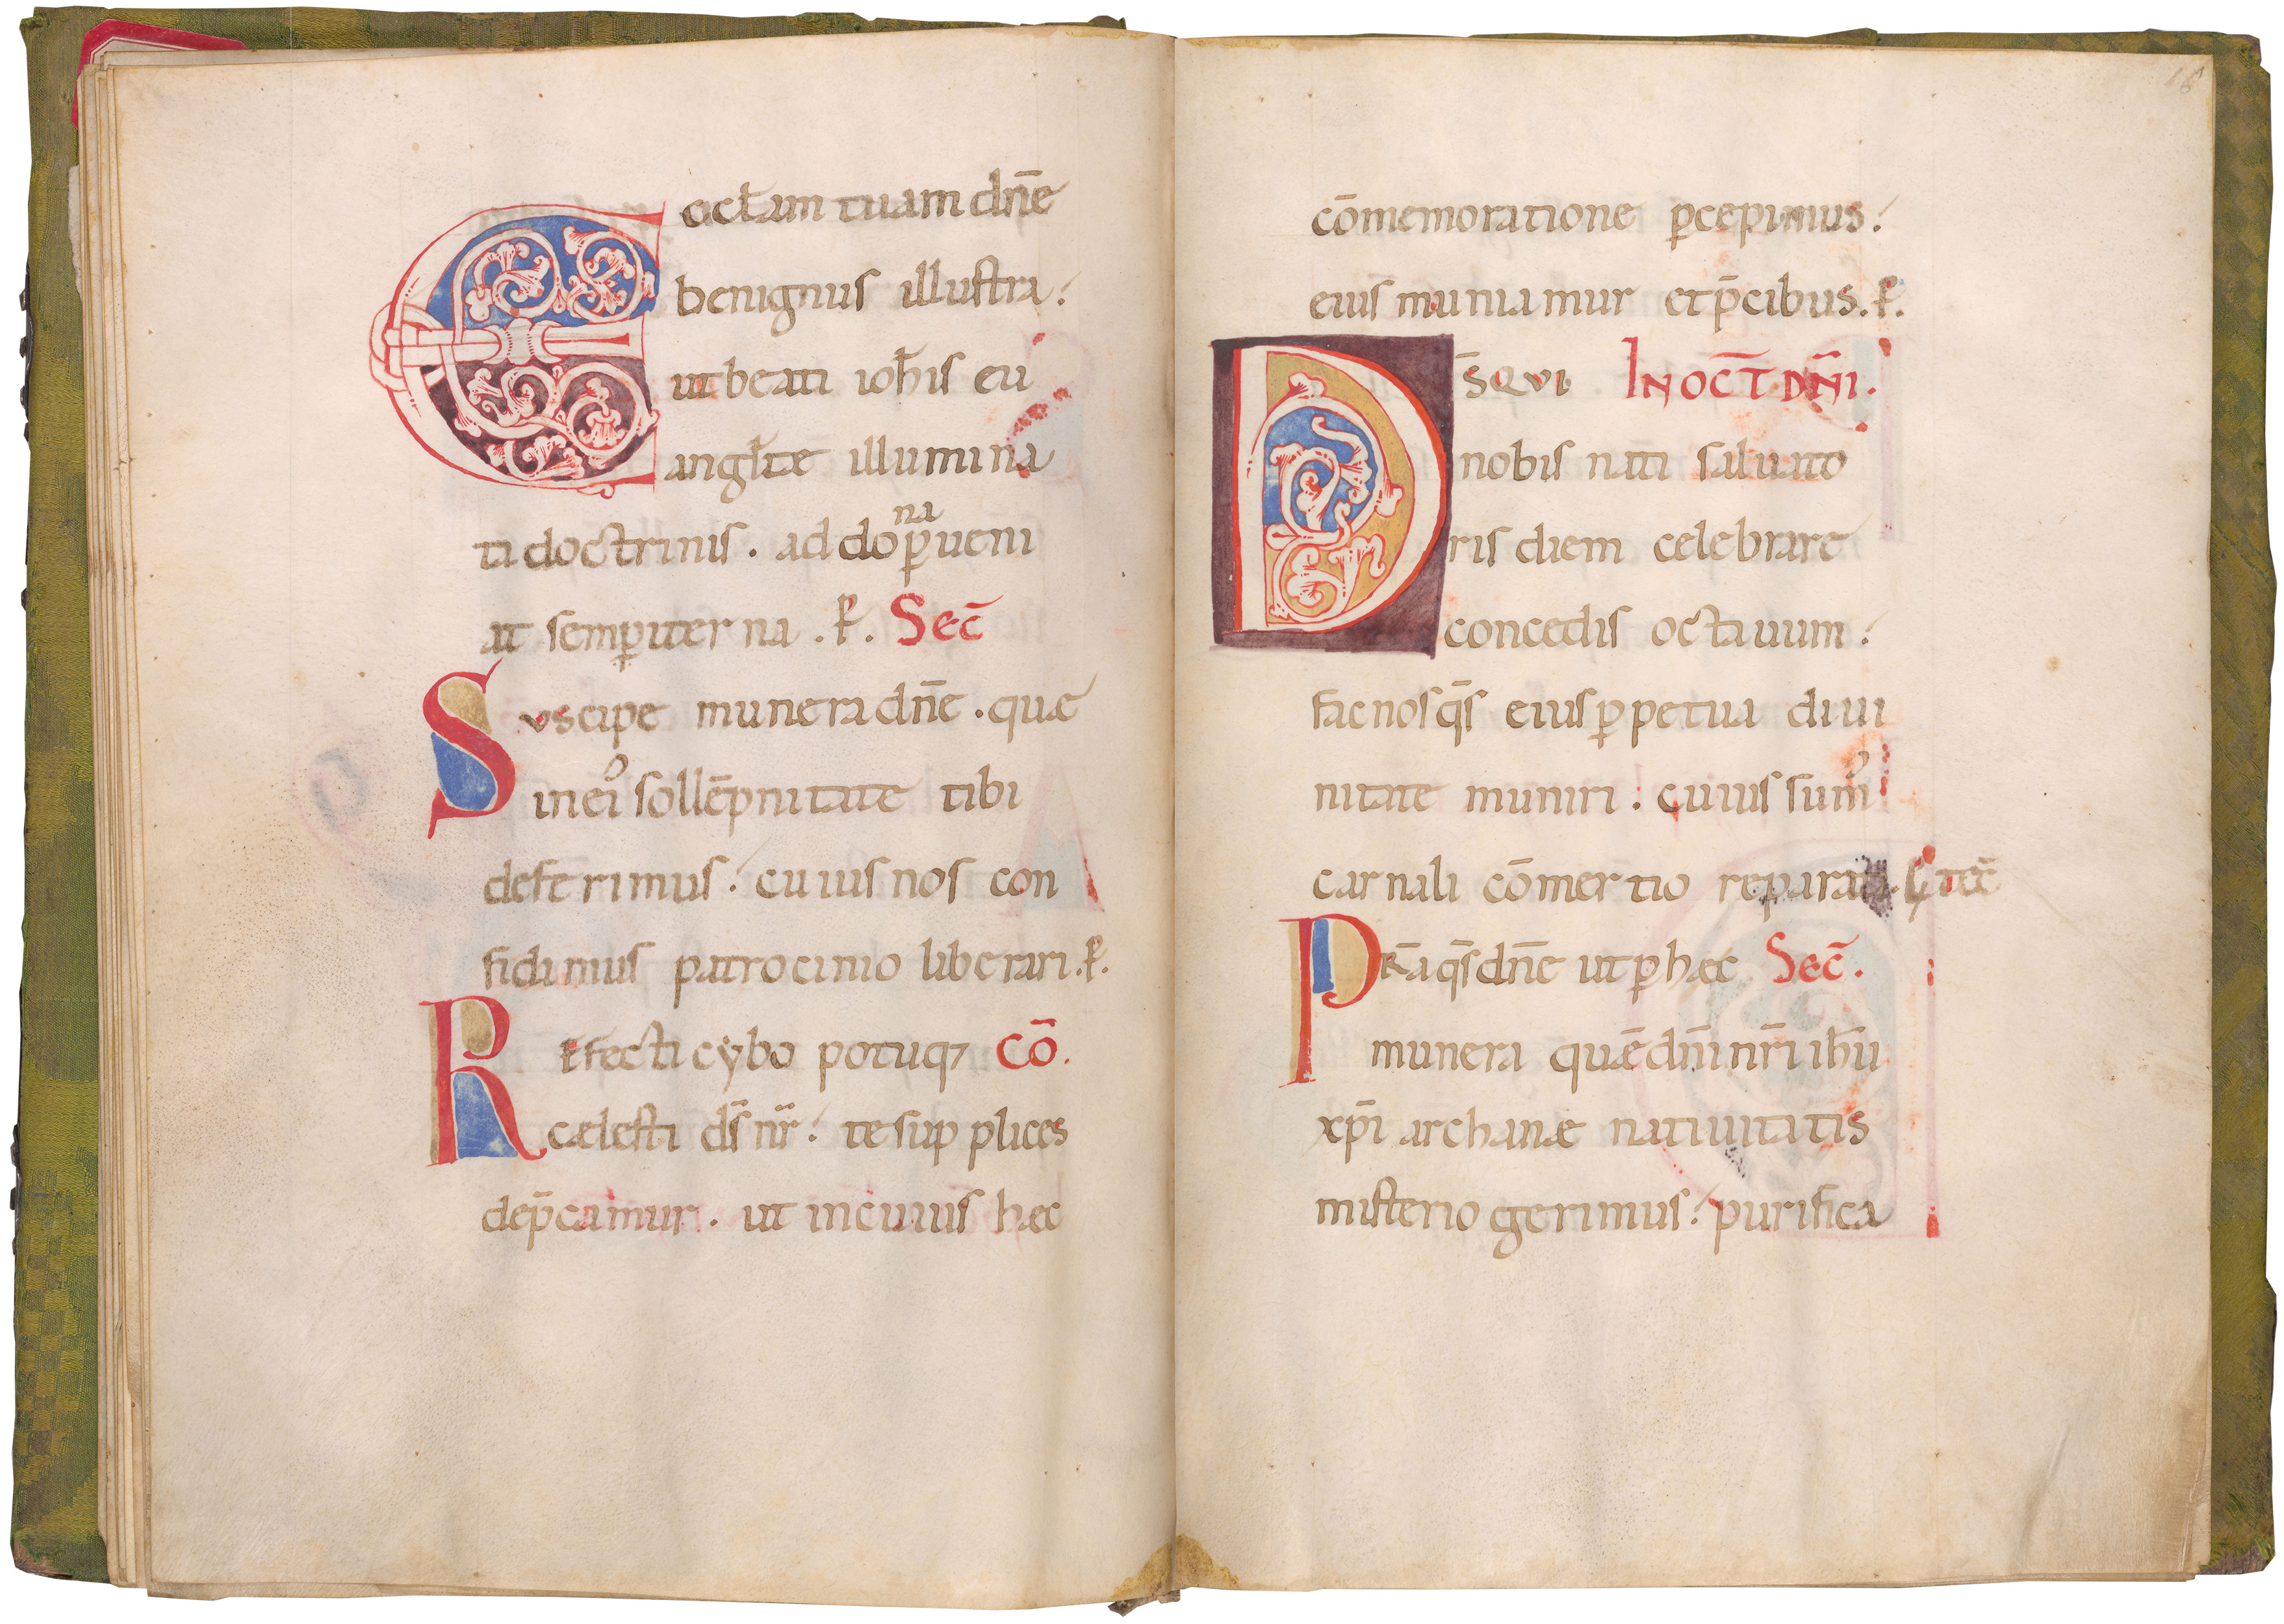 Eccłam tuam dn̄e
benignus illustra.
ut beati ioh̄is eu
anglīte illumina
ti doctrinis. ad dona ꝑueni
at sempiterna. ꝑ. Sec̄
Suscipe munera dn̄e. quæ
in ei᾽ sollēpnitate tibi
deferimus. cuius nos con
fidimus patrocinio liberari. ꝑ.
Refecti cybo potuq; Cō.
cælesti ds̄ nr̄. te supplices
dep̄camur. ut in cuius hæc
16
cōmemoratione ꝑcepimus.
eius muniamur et p̄cibus. ꝑ.
DS̄ QVI IN OCT̄ DN̄I.
nobis nati saluato
ris diem celebrare
concedis octauum.
fac nos qs̄ eius ꝑpetua diui
nitate muniri. cuius sum᾽
carnali cōmertio reparati.
PRĀ qs̄ dn̄e ut ꝑ hæc Sec̄.
munera quæ dn̄i nr̄i ih̄u
xp̄i archanæ natiuitatis
misterio gerimus. purifica